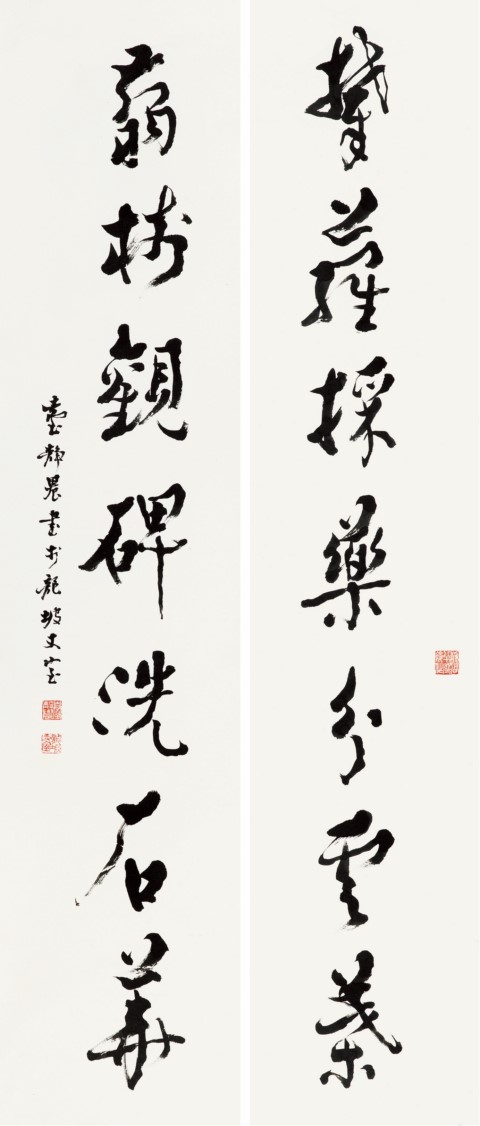 蘿採藥分雲葉
翦樹觀碑洗石華
臺靜農書於龍坡丈室